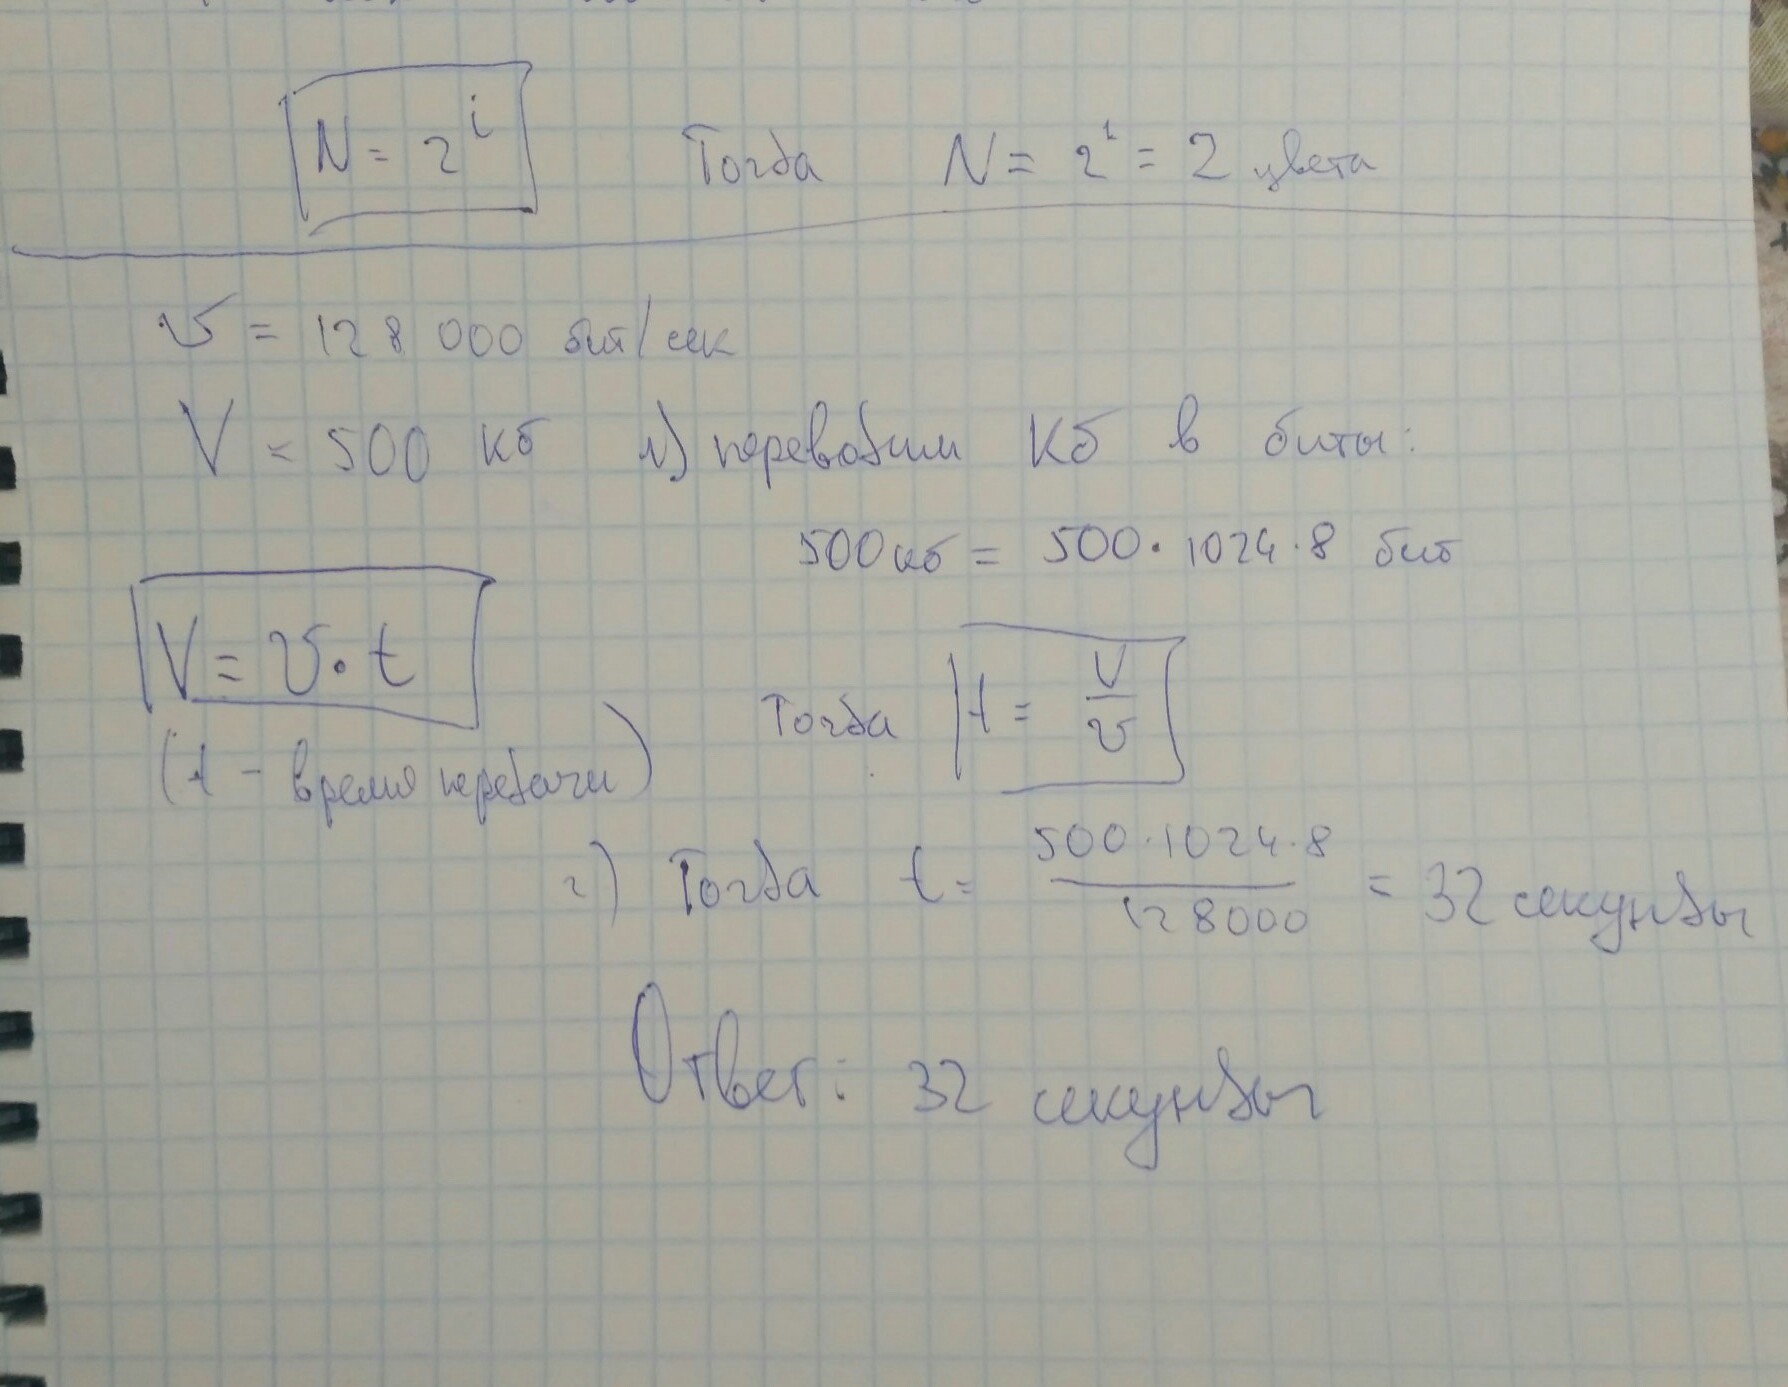 N = 2^i Тогда N = 2^1 = 2 цвета
v = 128 000 бит/сек
V = 500 кб 1) переводим Кб в биты:
500 кб = 500 · 1024 · 8 бит
V = v · t
Тогда t = V/v
(t - время передачи)
2) Тогда t = 500 · 1024 · 8 / 128000 = 32 секунды
Ответ: 32 секунды